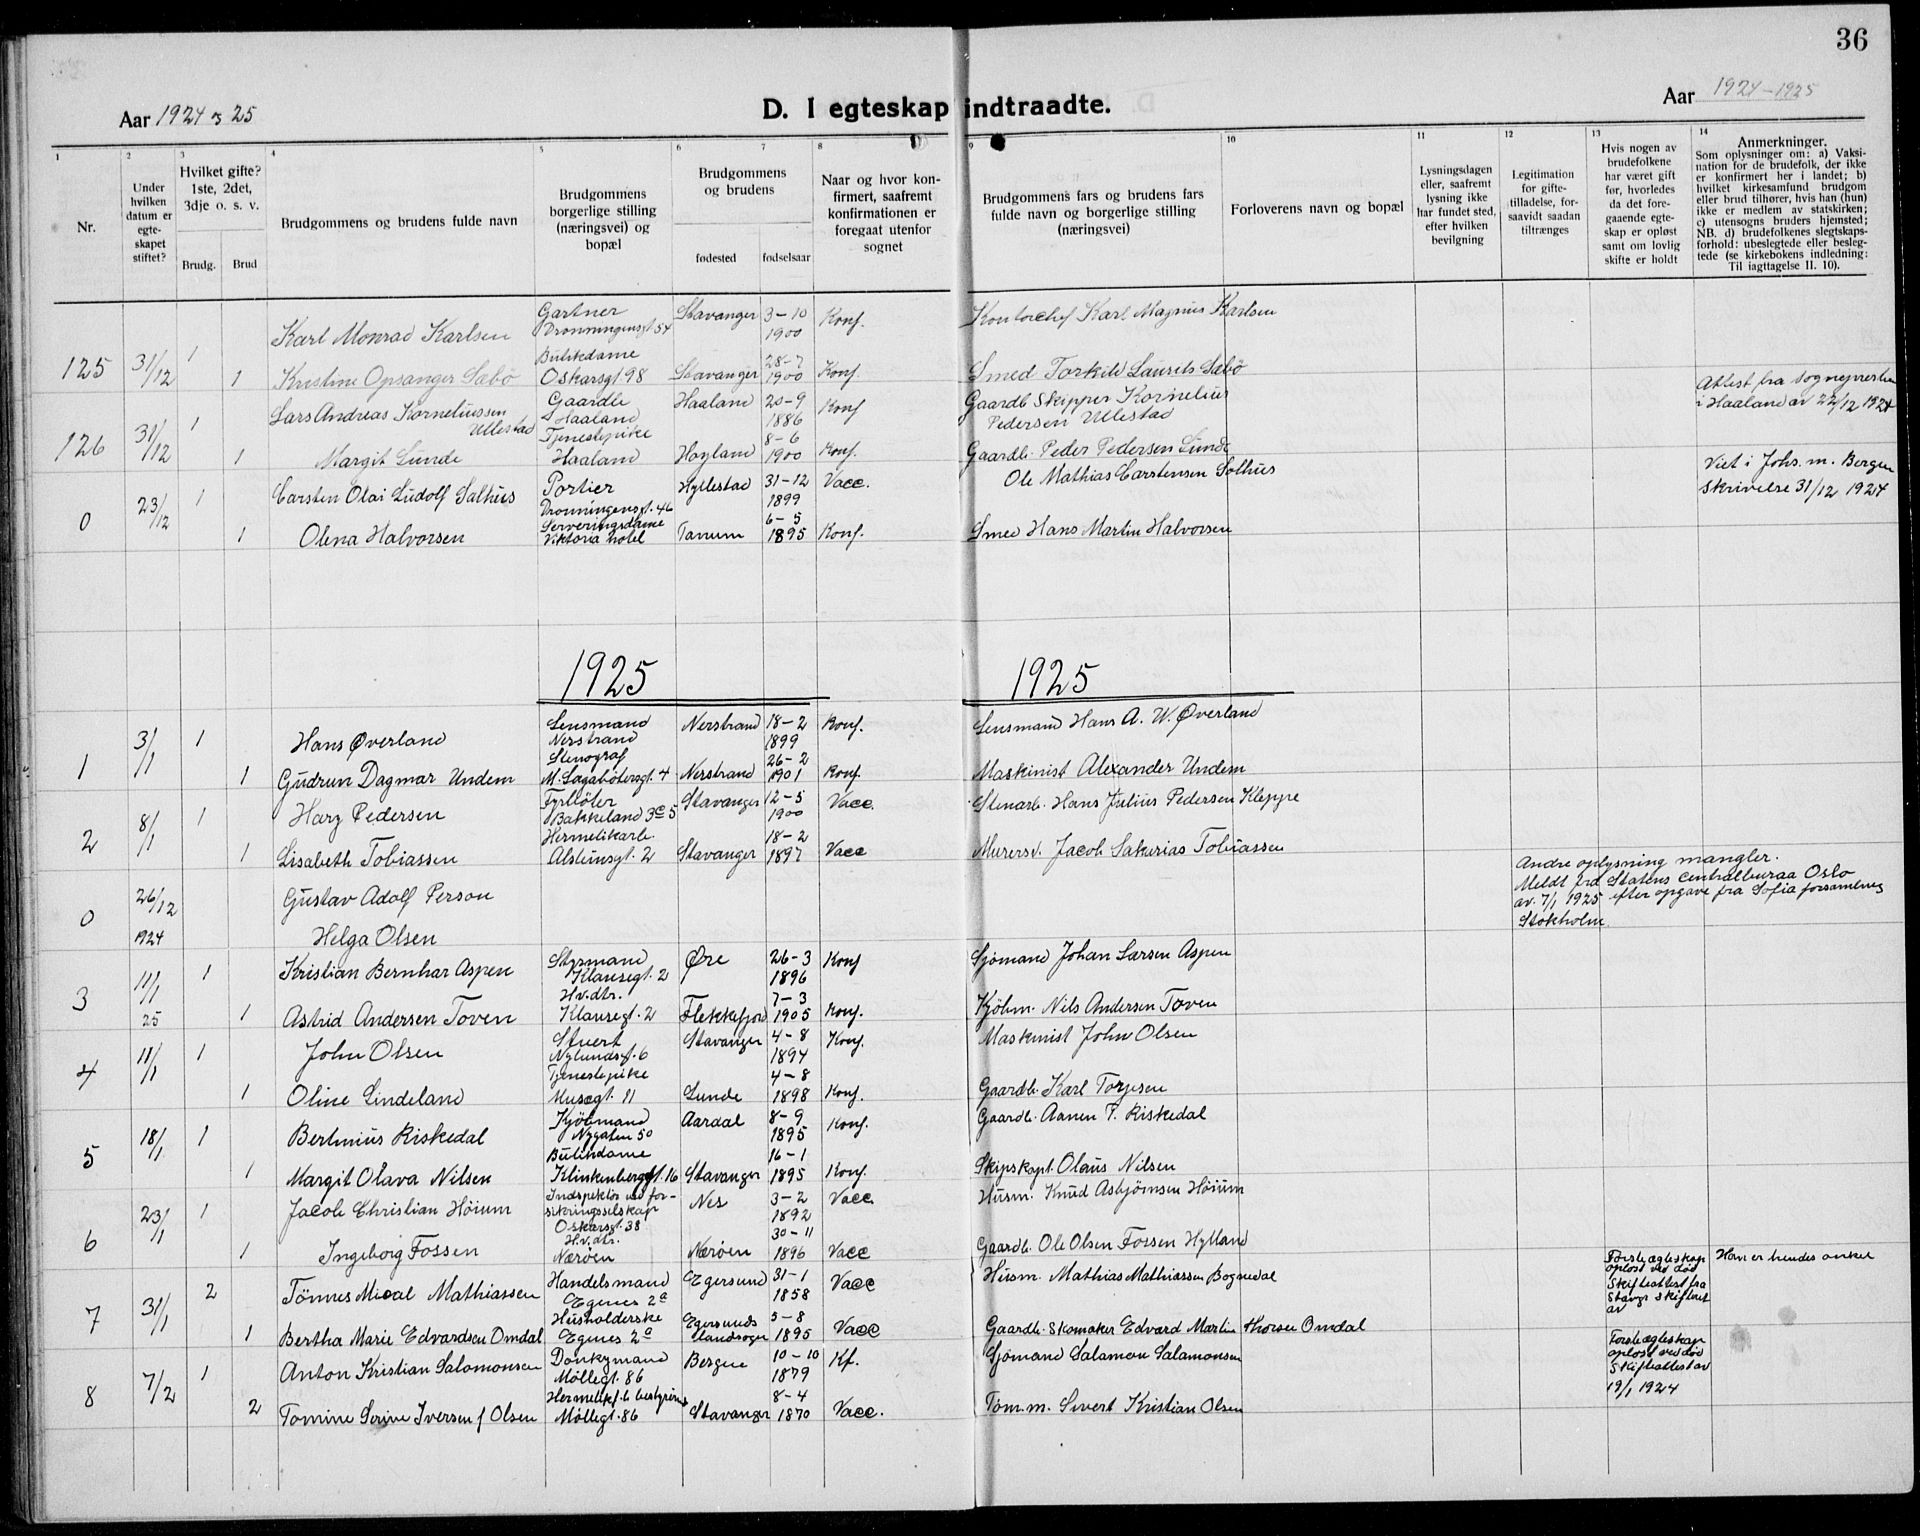 36
Aar 1924 og 25
D. I egteskap indtraadte.
Aar 1924-1925
1 2 3 4 5 6 7 8 9 10 11 12 13 14
Nr.
Under hvilken datum er egte- skapet stiftet?
Hvilket gifte? 1ste, 2det, 3dje o. s. v.
Brudg. Brud
Brudgommens og brudens fulde navn
Brudgommens borgerlige stilling (næringsvei) og bopæl
Brudgommens og brudens
fødested fødselsaar
Naar og hvor kon- firmert, saafremt konfirmationen er foregaat utenfor sognet
Brudgommens fars og brudens fars fulde navn og borgerlige stilling (næringsvei)
Forloverens navn og bopæl
Lysningsdagen eller, saafremt lysning ikke har fundet sted, efter hvilken bevilgning
Legitimation for gifte- tilladelse, for- saavidt saadan tiltrænges
Hvis nogen av brudefolkene har været gift før, hvorledes da det fore- gaaende egte- skap er opløst samt om lovlig skifte er holdt
Anmerkninger.
Som oplysninger om: a) Vaksi- nation for de brudefolk, der ikke er konfirmert her i landet; b) hvilket kirkesamfund brudgom eller brud tilhører, hvis han (hun) ikke er medlem av statskirken; c) utensogns bruders hjemsted; NB. d) brudefolkenes slegtskaps- forhold: ubeslegtede eller besleg- tede (se kirkebokens indledning: Til iagttagelse II. 10).
125 31/12 1 Karl Monrad Karlsen Gartner Dronningensgt 54 Stavanger 3-10 1900 Konf. Kontorchef Karl Magnus Karlsen
1 Kristine Opsanger Sæbö Butikdame Oskarsgt 98 Stavanger 28-7 1900 Konf Smed Torkild Laurits Sæbö
126 31/12 1 Lars Andreas Korneliussen Ullestad Gaardbr Haaland Haaland 20-9 1886 Konf Gaardb Skipper Kornelius Pedersen Ullestad Attest fra sognepresten i Haaland av 22/12 1924
1 Margit Lunde Tjenestepike Haaland Høyland 8-6 1900 Konf. Gaardb. Peder Pedersen Lunde
0 23/12 1 Carsten Olai Ludolf Salhus Portier Dronningensgt. 46 Hyllestad 31-12 1899 Vacc. Ole Mathias Carstensen Solhus Viet i Johs. m. Bergen skrivelse 31/12 1924
1 Olena Halvorsen Serveringsdame Viktoria hotel Tanum 6-5 1895 Konf. Smed Hans Martin Halvorsen
1925 1925
1 3/1 1 Hans Øverland Lensmand Nerstrand Nerstrand 18-2 1899 Konf. Lensmand Hans A. W. Øverland
1 Gudrun Dagmar Undem Stenograf M. Lagabötersgt. 4 Nerstrand 26-2 1901 Konf. Maskinist Alexander Undem
2 8/1 1 Harz Pedersen Fyrböter Bakkeland 3c 5 Stavanger 12-5 1900 Vacc. Stenarb. Hans Julius Pedersen Kleppe
1 Lisabeth Tobiassen Hermetikarb. Alsteinsgt. 2 Stavanger 18-2 1897 Vacc Murersv. Jacob Sakarias Tobiassen
0 26/12 1924 Gustav Adolf Person
Helga Olsen
Andre oplysning mangler.
Meldt fra Statens Centralburaa Oslo
av. 7/1 1925 efter opgave fra Sofia forsamling
Stokholm.
3 11/1 25 1 Kristian Bernhar Aspen Styrmand Klausegt. 2 Øre 26-3 1896 Konf Sjømand Johan Larsen Aspen
1 Astrid Andersen Toven Hv.dtr. Klausegt. 2 Flekkefjord 7-3 1905 Konf. Kjöbm. Nils Andersen Toven
4 11/1 1 John Olsen Stuert Nylundsgt. 6 Stavanger 4-8 1894 Konf. Maskinist John Olsen
1 Oline Lindeland Tjenestepike Musegt. 11 Lunde 4-8 1898 Konf. Gaardb. Karl Torjesen
5 18/1 1 Bertinius Riskedal Kjöbmand Nygaten 50 Aardal 8-9 1895 Konf. Gaardb. Aanen T. Riskedal
1 Margit Olava Nilsen Butikdame Klinkenberggt. 16 Stavanger 16-1 1895 Konf. Skipskapt. Olaus Nilsen
6 23/1 1 Jacob Christian Höium Indspektör ved for- sikringsselskap Oskarsgt. 38 Nes 3-2 1892 Vacc. Husm. Knud Asbjörnsen Höium
1 Ingeborg Fossen Hv.dtr. Nærøen Nærøen 30-11 1896 Vacc Gaardb. Ole Olsen Fossen Hylland
7 31/1 2 Tönnes Mical Mathiassen Handelsmand Egenes 2a Egersund 31-1 1858 Vacc Husm. Mathias Mathiassen Bognedal Første ægteskap opløst ved død Skifteattest fra Stavgr skifteret av Han er hendes onkel
1 Bertha Marie Edvardsen Omdal Husholderske Egenes 2a Egersunds landsogn 5-8 1895 Vacc Gaardb. Skomaker Edvard Martin Thorsen Omdal
8 7/2 1 Anton Kristian Salomonsen Donkymand Möllegt. 86 Bergen 10-10 1879 Kf. Sjömand Salamon Salamonsen Første ægteskap opløst ved død Skifteattest av 19/1 1924
2 Tomine Serine Iversen f Olsen Hermetikf.b bestyrerinde Möllegt. 86 Stavanger 8-4 1870 Vacc. Töm.m. Sivert Kristian Olsen